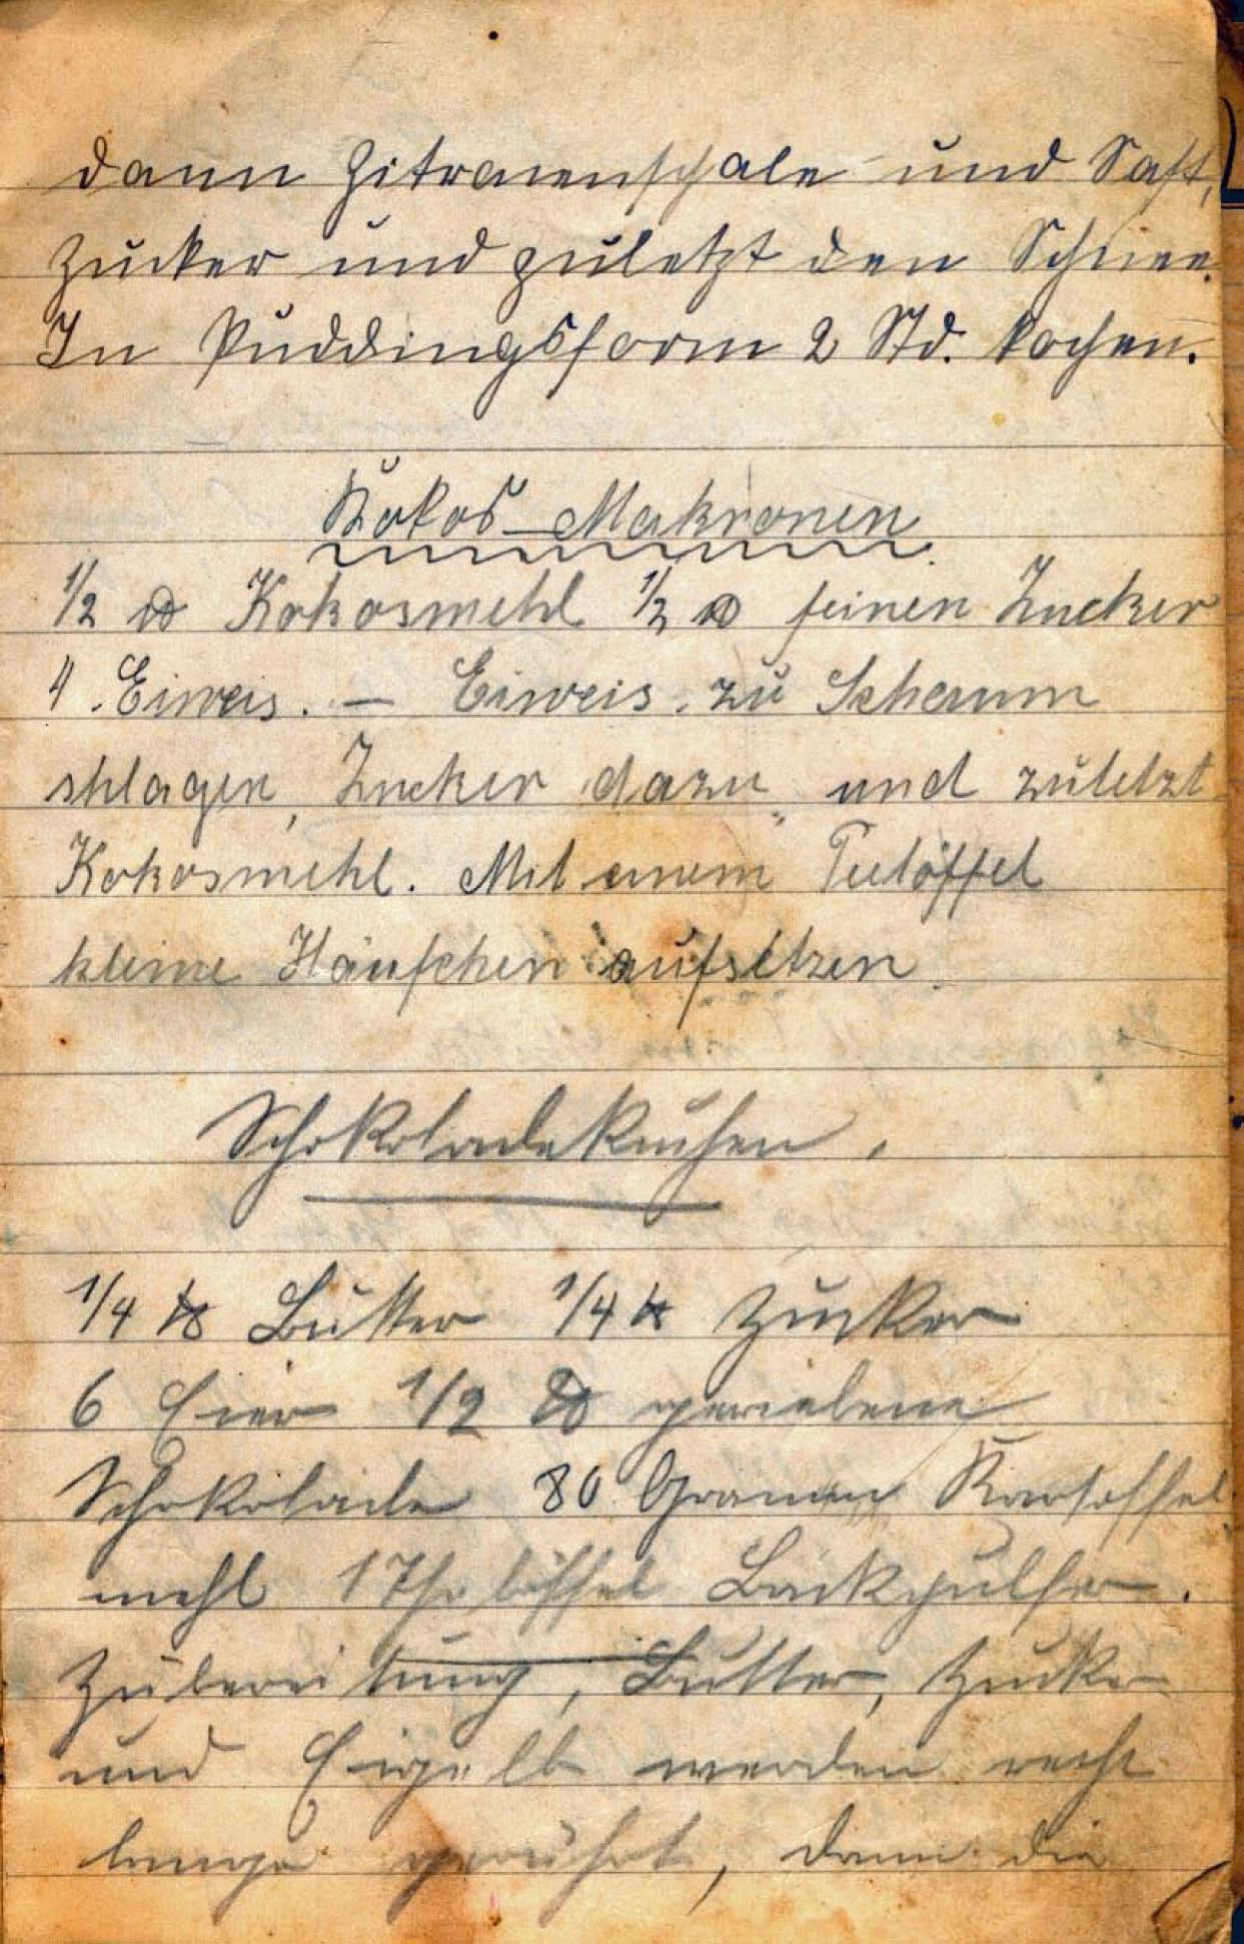 dann Zitronenschale und Saft,
Zucker und zuletzt den Schnee.
In Puddingsform 2 Std. kochen.
Kokos-Makronen.
1/2 ℔ Kokosmehl 1/2 ℔ feinen Zucker
4 Eiweis. – Eiweis zu Schaum
shlagen, Zucker dazu, und zuletzt
Kokosmehl. Mit einem Teelöffel
kleine Häufchen aufsetzen.
Schokoladekuchen.
1/4 ℔ Butter 1/4 ℔ Zucker
6 Eier 1/2 ℔ geriebene
Schokolade 80 Gramm Kartoffel
mehl 1 Theelöffel Backpulfer.
Zubereitung, Butter, Zucker
und Eigelb werden recht
lange gerührt, dann die